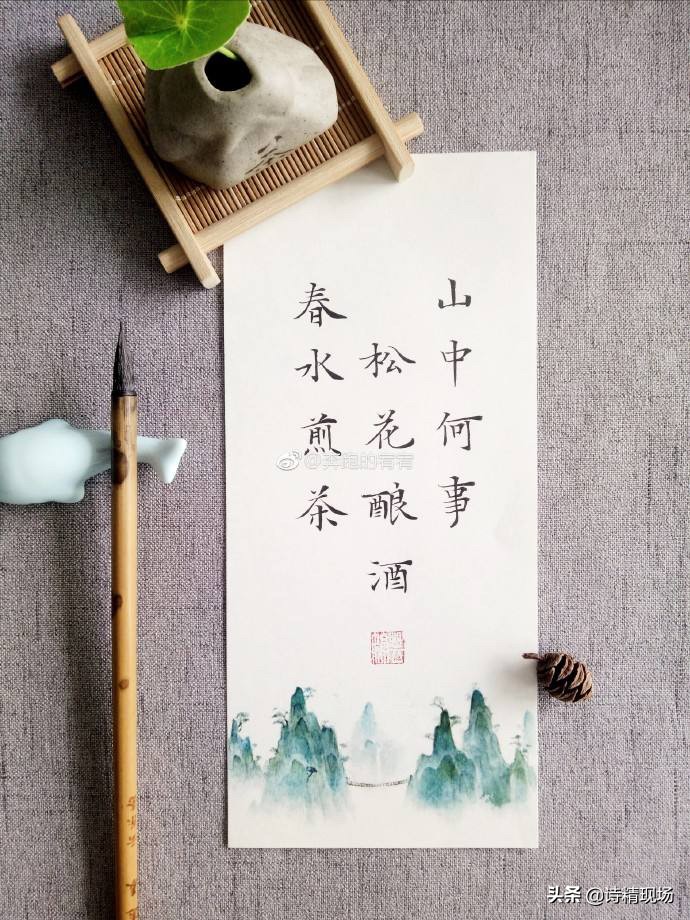 山中何事
松花酿酒
春水煎茶
@奔跑的有有
头条 @诗精现场